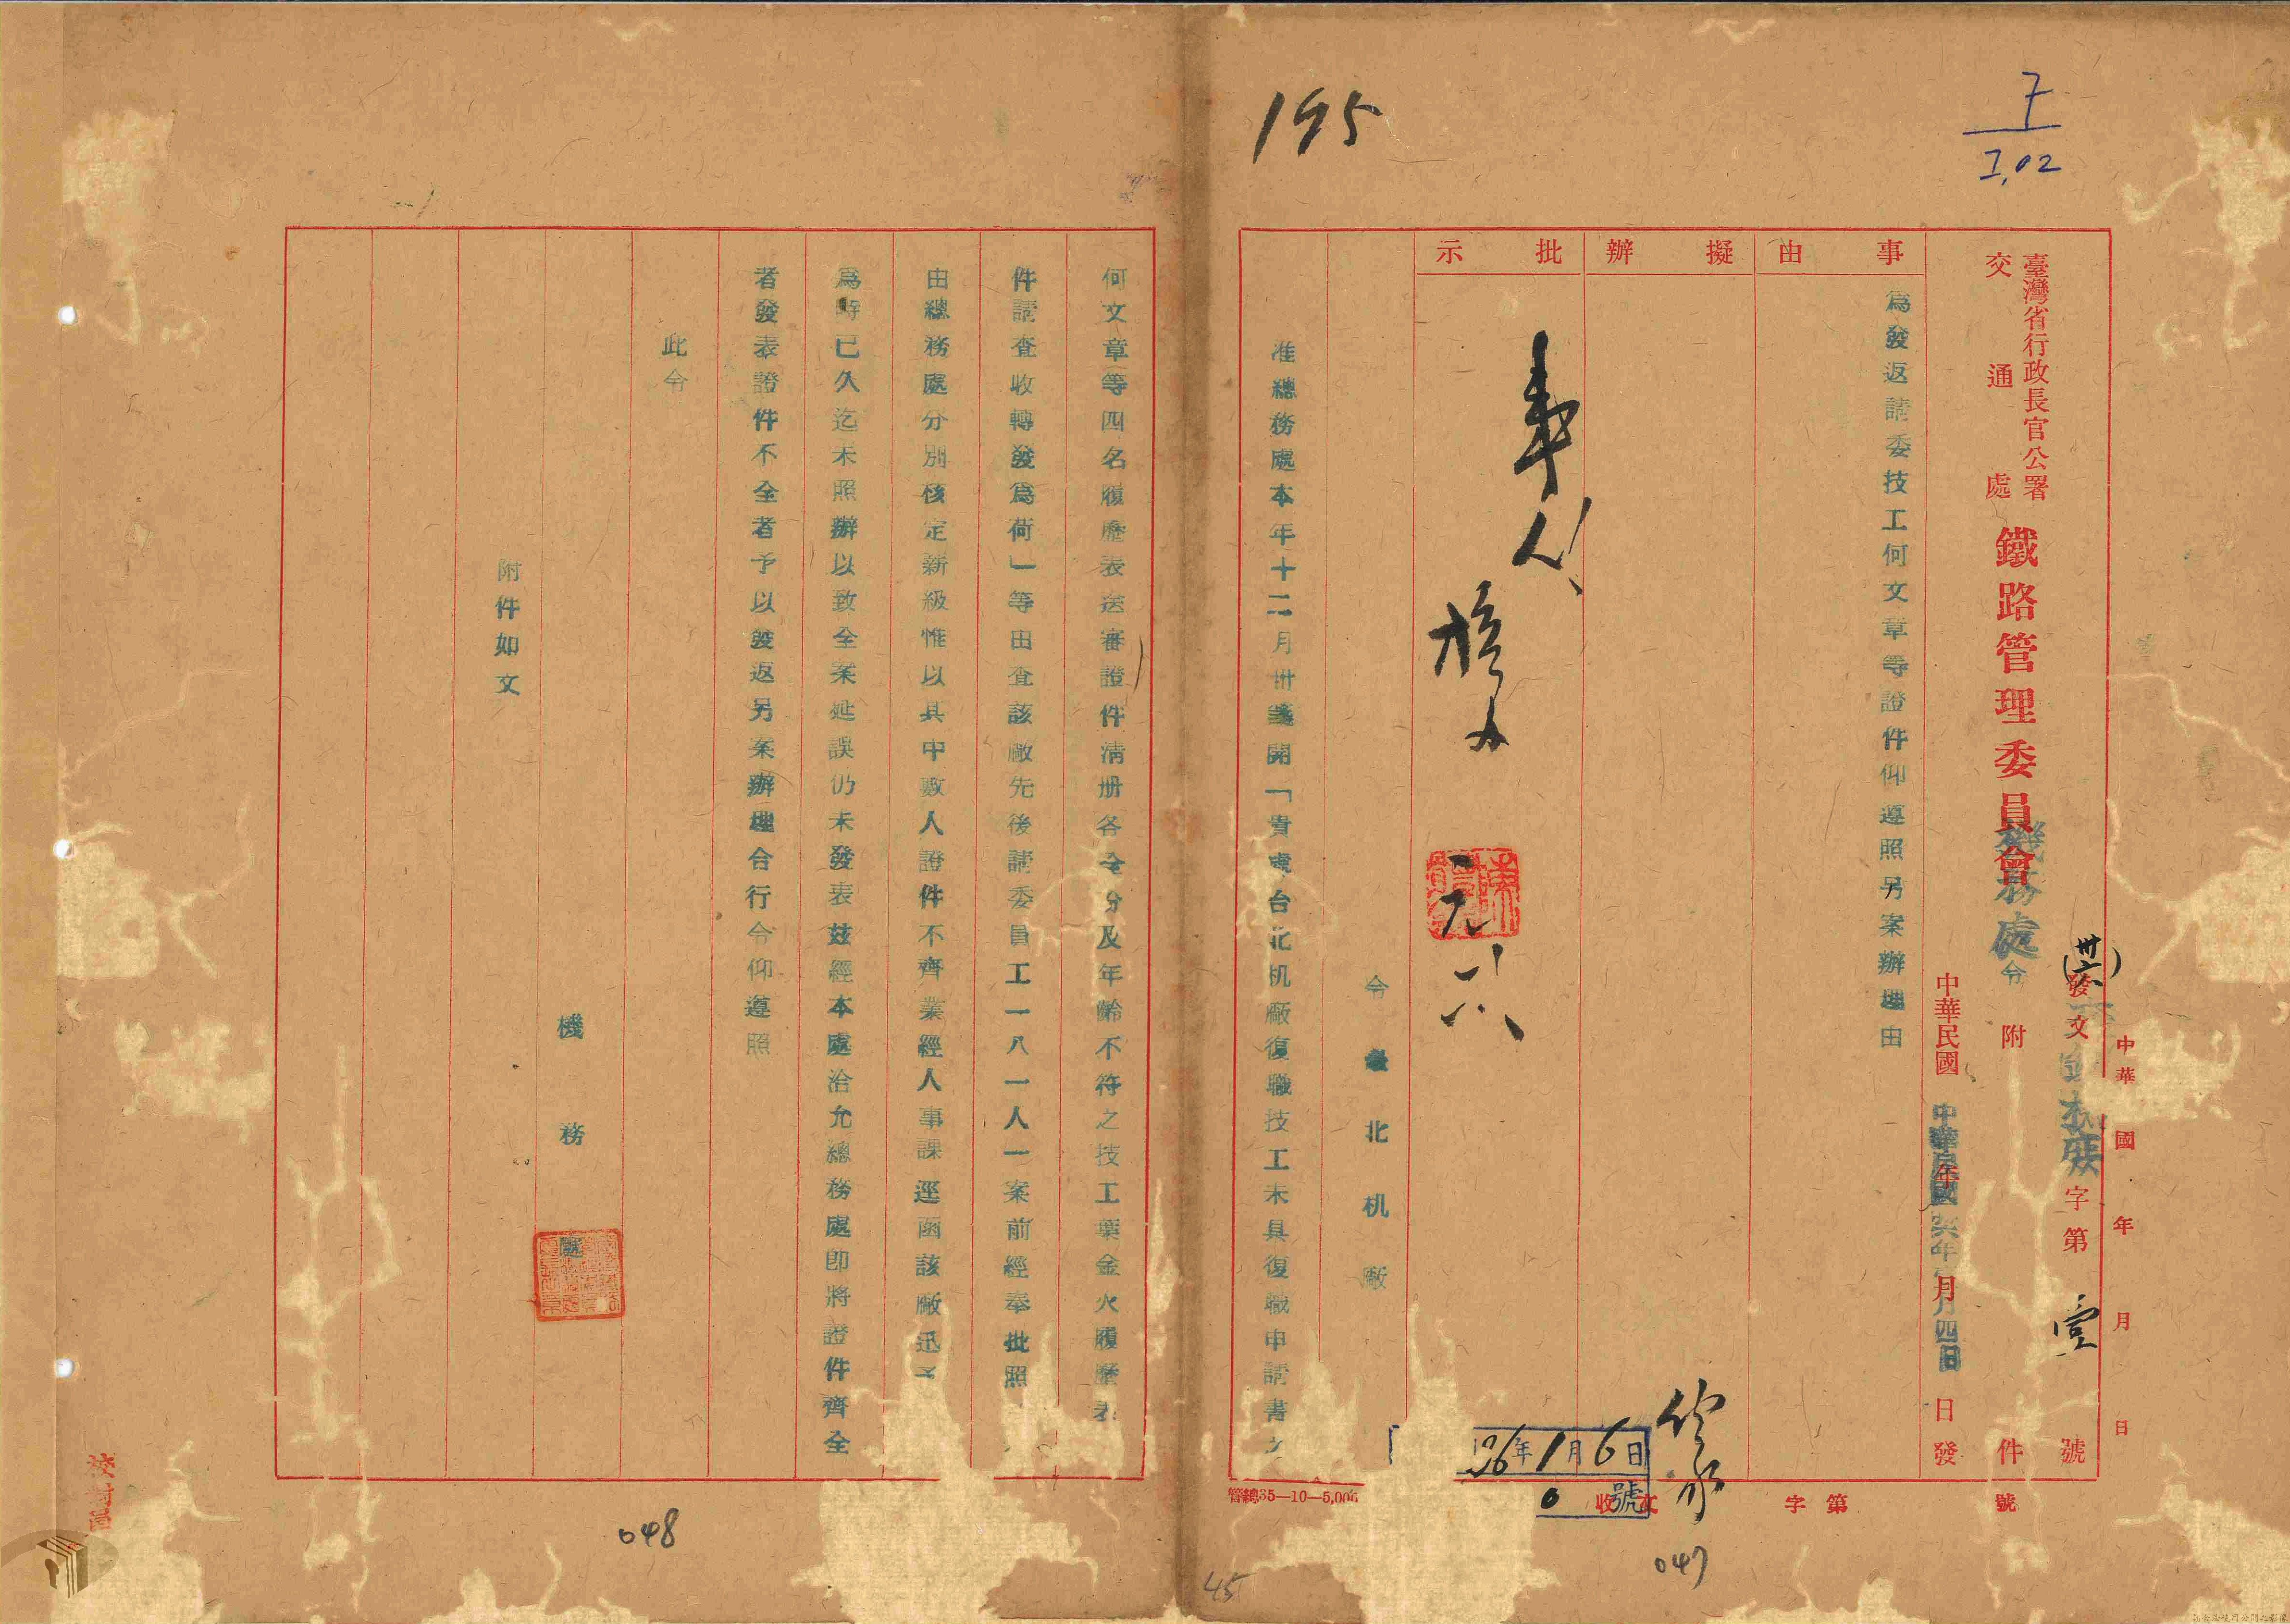 195
7
I,02
臺灣省行政長官公署
交通處
鐵路管理委員會
機務處
令
附
件
中華民國
年
月
日
發文
字第
壹
號
(卅六)
中華民國
中華民國卅六年
月四日
年
月
日
發
事由
為發返請委技工何文章等證件仰遵照另案辦理由
擬辦
批示
事人
核办
元
六
令
臺北机廠
准總務處本年十二月卅
開「貴處台北机廠復職技工未具復職申請書之
何文章等四名履歷表送審證件清册各令分及年齡不符之技工葉金火履歷表
件請查收轉發為荷」等由查該廠先後請委員工一八一人一案前經奉批照
由總務處分別核定新級惟以其中數人證件不齊業經人事課逕函該廠迅予
為時已久迄未照辦以致全案延誤仍未發表茲經本處洽允總務處即將證件齊全
者發表證件不全者予以發返另案辦理合行令仰遵照
此令
機務處
附件如文
36年1月6日
號
收文
字第
號
管總35—10—5,000
047
048
45
校對